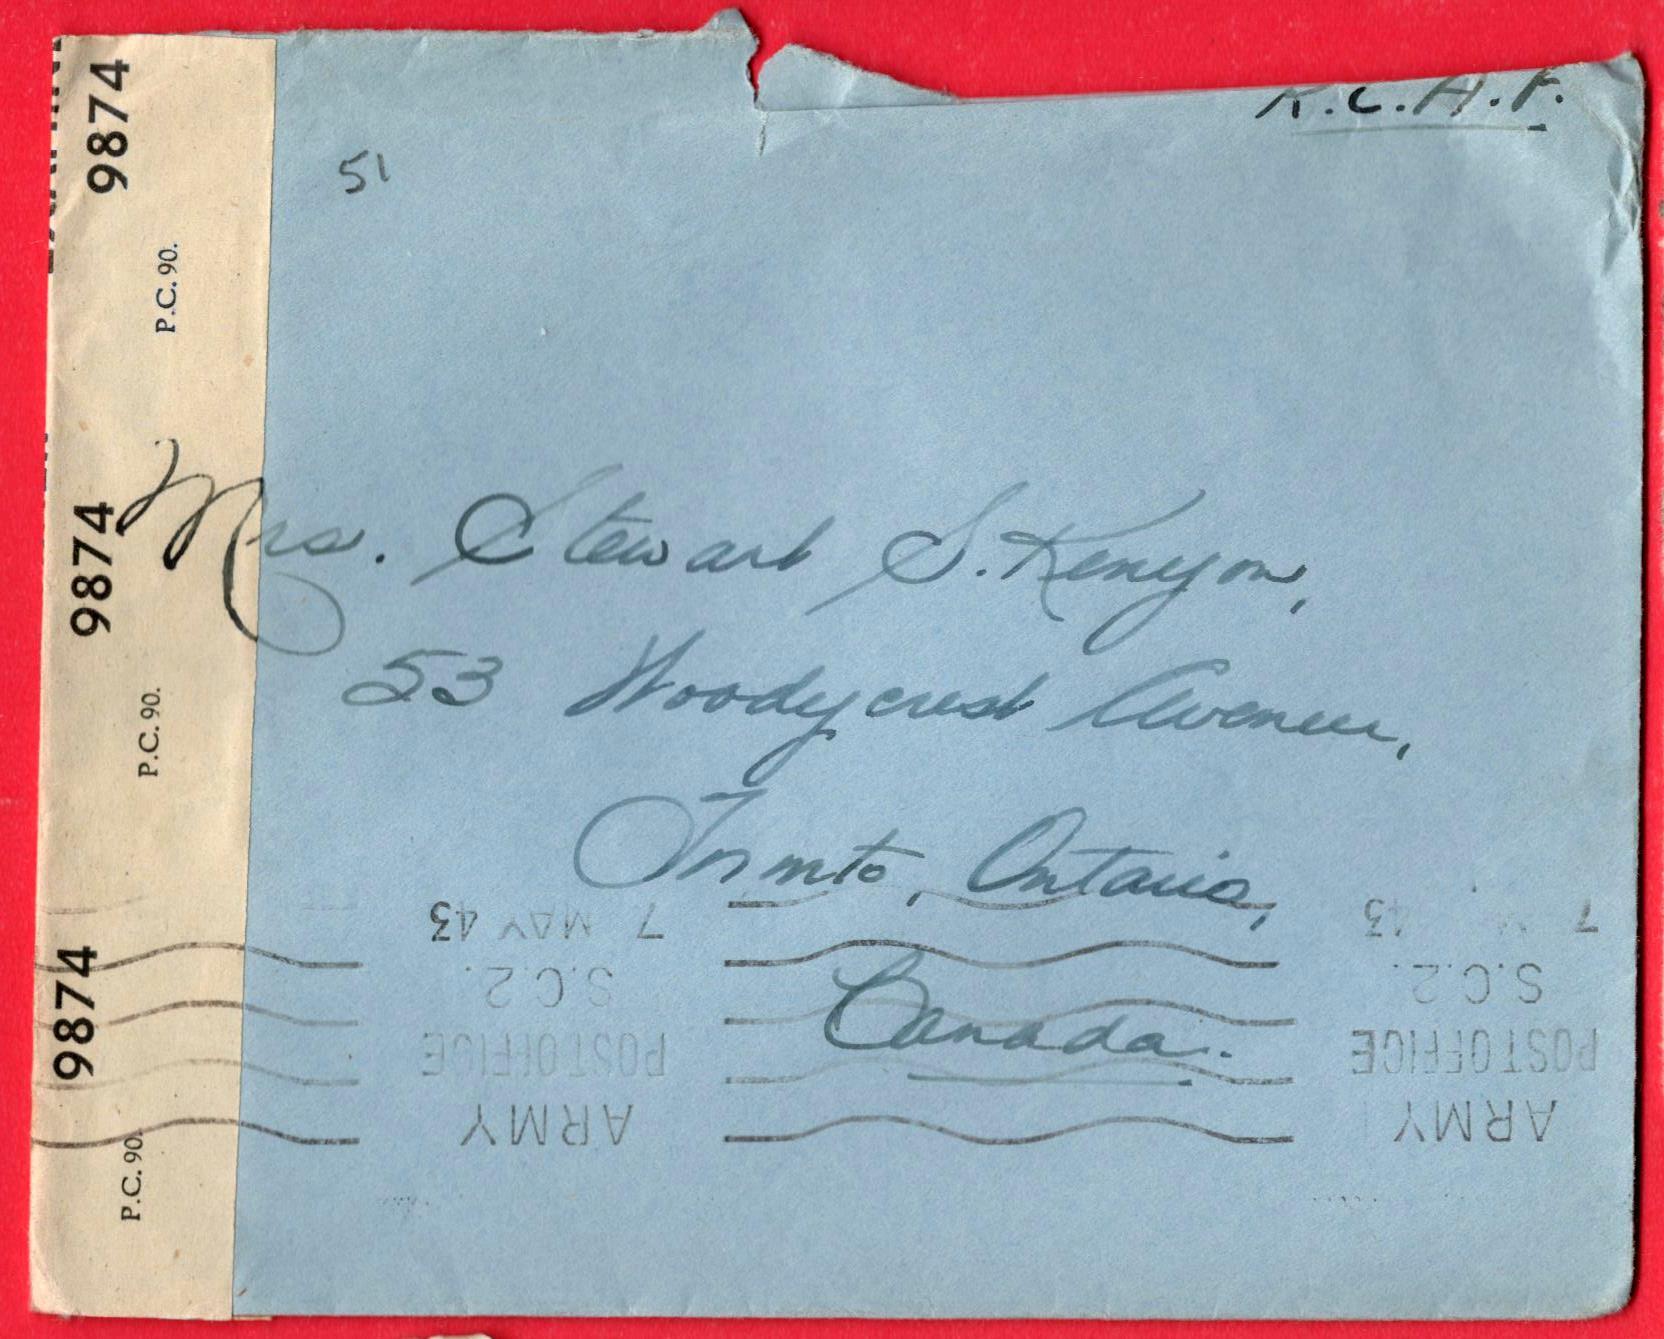 R.C.A.F.
51
Mrs. Stewart S. Kenyon,
53 Woodycrest Avenue,
Toronto, Ontario,
Canada.
9874
P.C. 90.
9874
P.C. 90.
9874
P.C. 90.
ARMY
POST OFFICE
S.C.2.
7 MAY 43
ARMY
POST OFFICE
S.C.2.
7 43